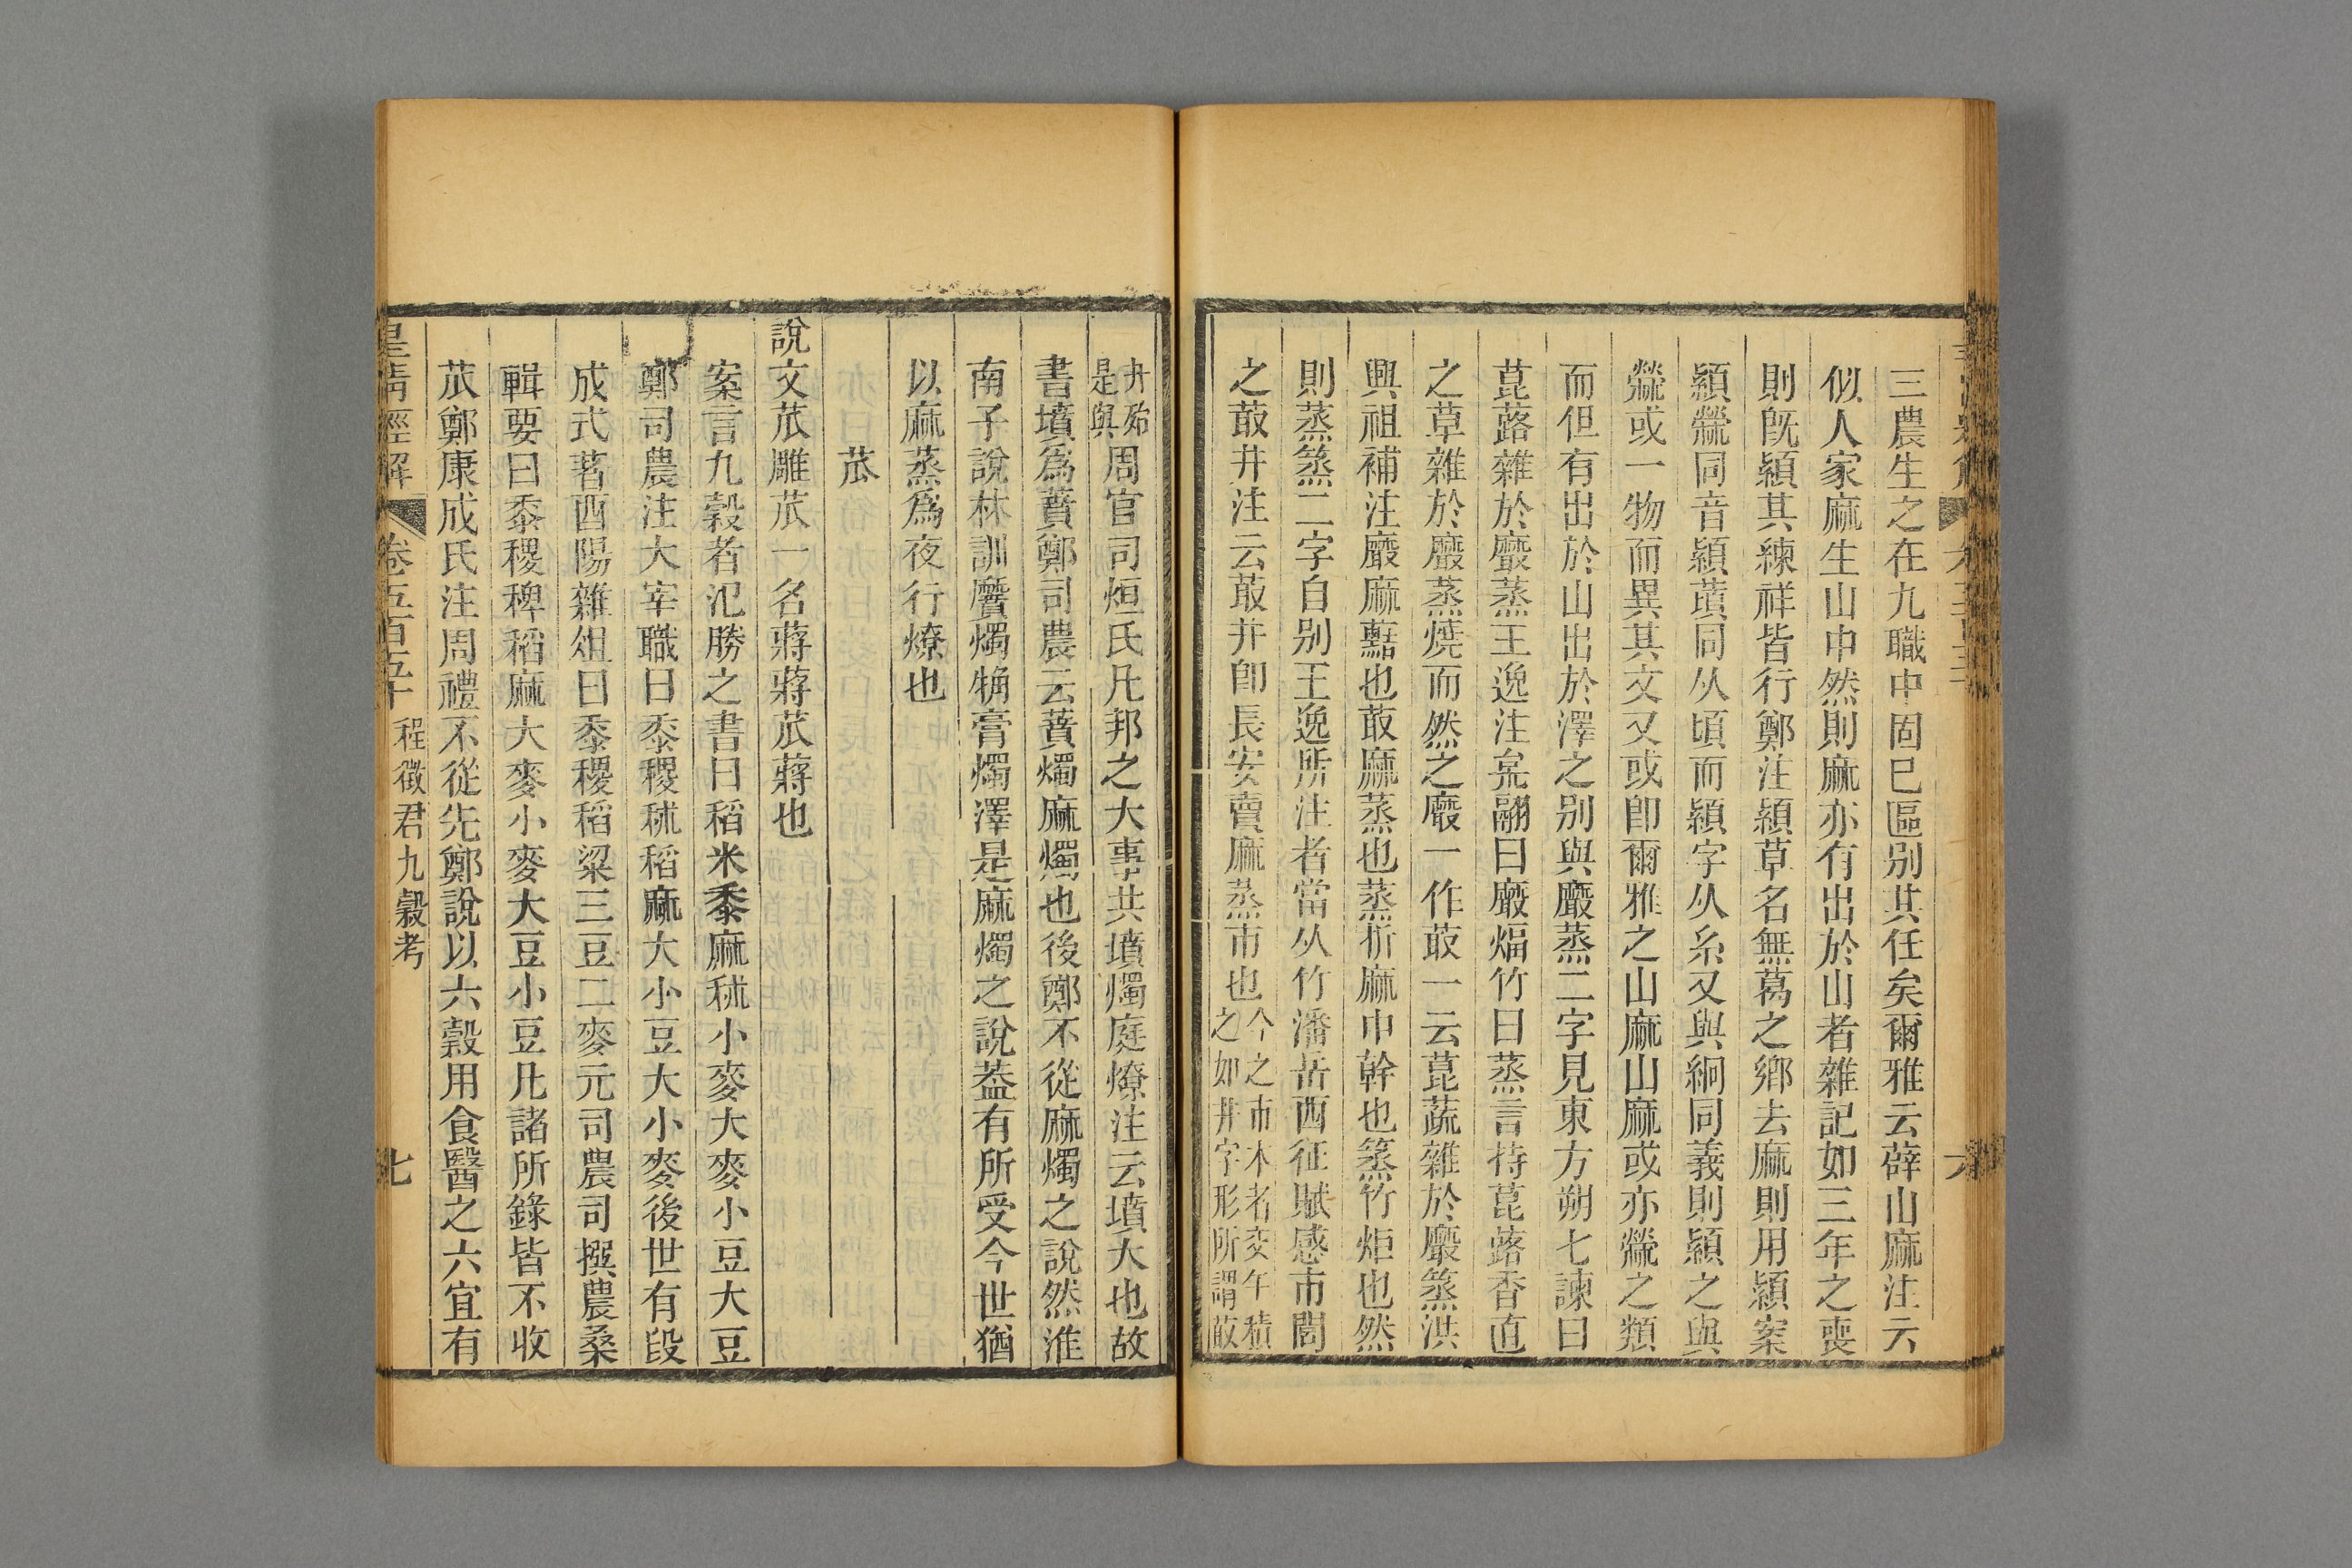 三農生之在九職中固巳區別其任矣爾雅云薜山麻注云
似人家麻生山中然則麻亦有出於山者雜記如三年之喪
則旣顈其練祥皆行鄭注顈草名無葛之鄉去麻則用顈案
顈䔛同音顈蕡同从頃而顈字从糸又與絅同義則顈之與
或一物而異其文又或卽爾雅之山麻山麻或亦之類
而但有出於山出於澤之別與廢蒸二字見東方朔七諫曰
菎蕗雜於黀蒸王逸注枲翮曰黀煏竹曰蒸言持菎蕗香直
之草雜於黀蒸燒而然之黀一作菆一云菎蔬雜於黀篜洪
興祖補注黀麻藍也菆麻蒸也蒸析麻中幹也篜竹炬也然
則蒸篜二字自別王逸所注者當从竹潘岳西征賦感市閭
之菆井注云菆井卽長安賣麻蒸市也今之市木者交午積之如井字形所謂菆
井殆是與周官司烜氏凡邦之大事共墳燭庭燎注云墳大也故
書墳爲蕡鄭司農云蕡燭麻燭也後鄭不從麻燭之說然淮
南子說林訓黂燭㹻膏燭澤是麻燭之說葢有所受今世猶
以麻蒸爲夜行燎也
苽
說文苽雕苽一名蔣蔣苽蔣也
案言九穀者氾勝之書曰稻米黍麻秫小麥大麥小豆大豆
鄭司農注大宰職曰黍稷秫稻麻大小豆大小麥後世有段
成式著酉陽雜俎曰黍稷稻粱三豆二麥元司農司撰農桑
輯要曰黍稷稗稻麻大麥小麥大豆小豆凡諸所錄皆不收
苽鄭康成氏注周禮不從先鄭說以六穀用食醫之六宜有
皇清經解 卷五百五十 程徵君九穀考 七